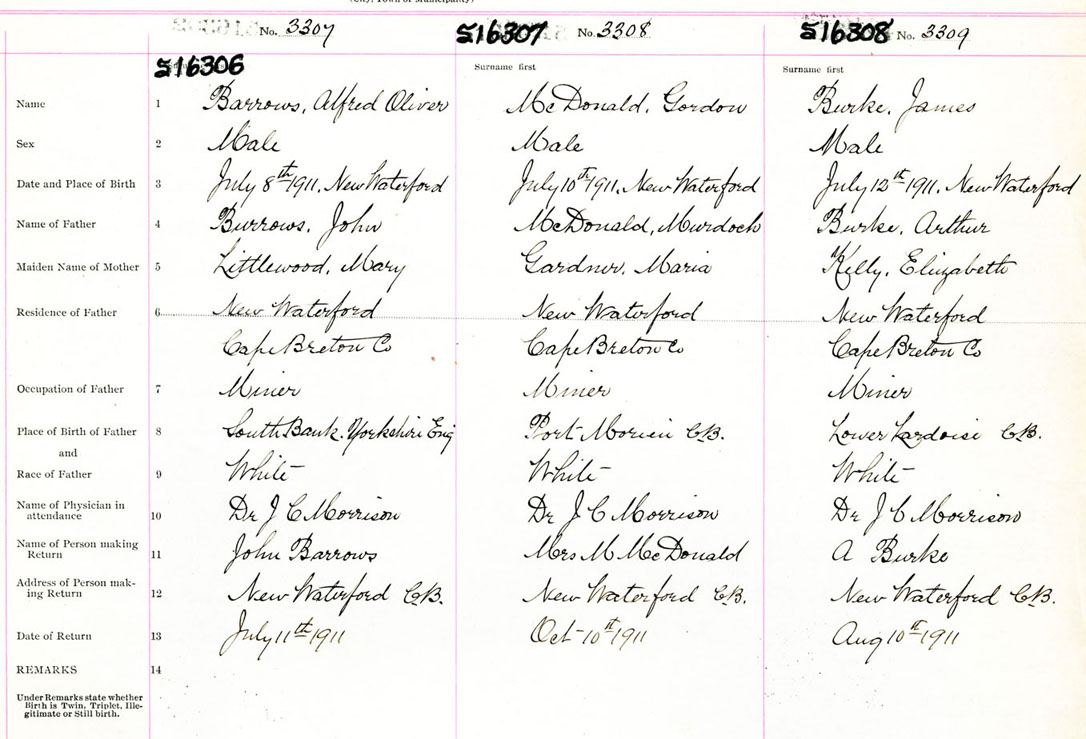 No. 3307 S16307 No. 3308 S16308 No. 3309
S16306 Surname first Surname first
Name 1 Barrows, Alfred Oliver McDonald, Gordon Burke, James
Sex 2 Male Male Male
Date and Place of Birth 3 July 8th 1911, New Waterford July 10th 1911, New Waterford July 12th 1911, New Waterford
Name of Father 4 Burrows, John McDonald, Murdoch Burke, Arthur
Maiden Name of Mother 5 Littlewood, Mary Gardner, Maria Kelly, Elizabeth
Residence of Father 6 New Waterford New Waterford New Waterford
Cape Breton Co Cape Breton Co Cape Breton Co
Occupation of Father 7 Miner Miner Miner
Place of Birth of Father 8 South Bank, Yorkshire Eng Port Morien C.B. Lower C.B.
and
Race of Father 9 White White White
Name of Physician in
attendance 10 Dr J C Morrison Dr J C Morrison Dr J C Morrison
Name of Person making
Return 11 John Barrows Mrs M McDonald A Burke
Address of Person mak-
ing Return 12 New Waterford C.B. New Waterford C.B. New Waterford C.B.
Date of Return 13 July 11th 1911 Oct 10th 1911 Aug 10th 1911
REMARKS 14
Under Remarks state whether
Birth is Twin, Triplet, Ille-
gitimate or Still birth.